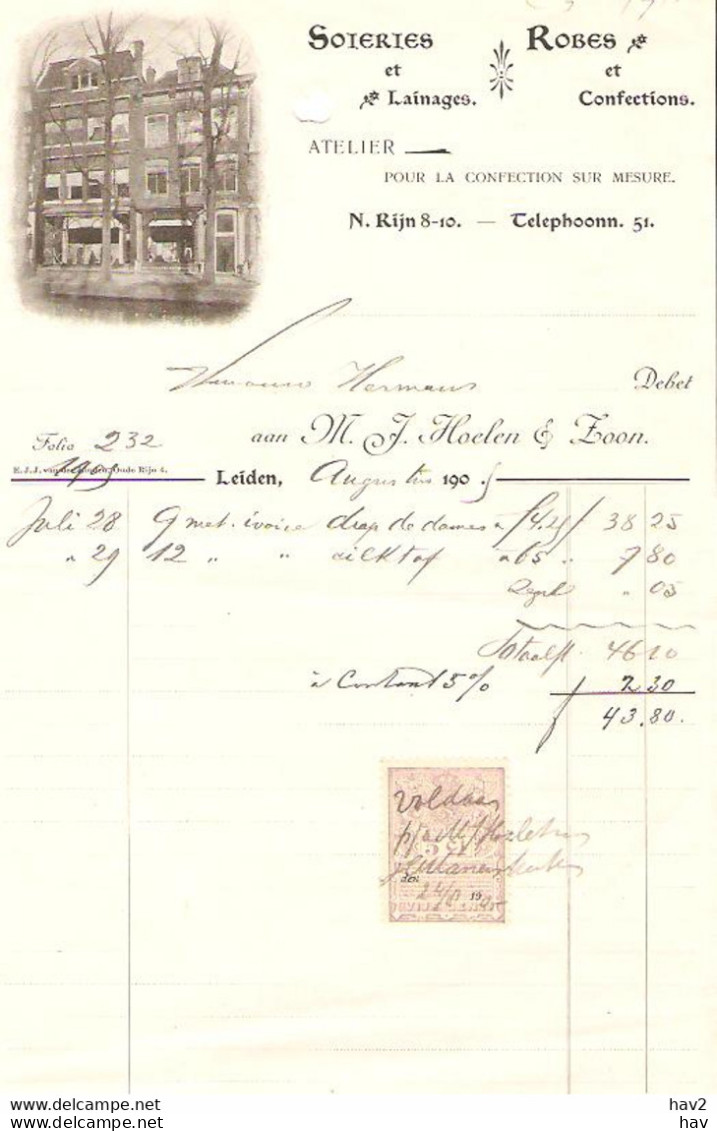 Soieries Robes
et et
Lainages. Confections.
Atelier
pour la confection sur mesure.
N. Rijn 8-10. — Telephoonn. 51.
Hermans Debet
Folio 232 aan M. J. Hoelen & Zoon.
E.J.J. van der Oude Rijn 4.
Leiden, Augustus 1905
Juli 28 9 met. ivoire drap de dames à f 4.25 38 25
" 29 12 " " à 65 " 7 80
Zegel " 05
Totaal fl. 46 10
à Contant 5% 2 30
43.80.
voldaan
5 Ct
den 24/8 1905
hav2
hav